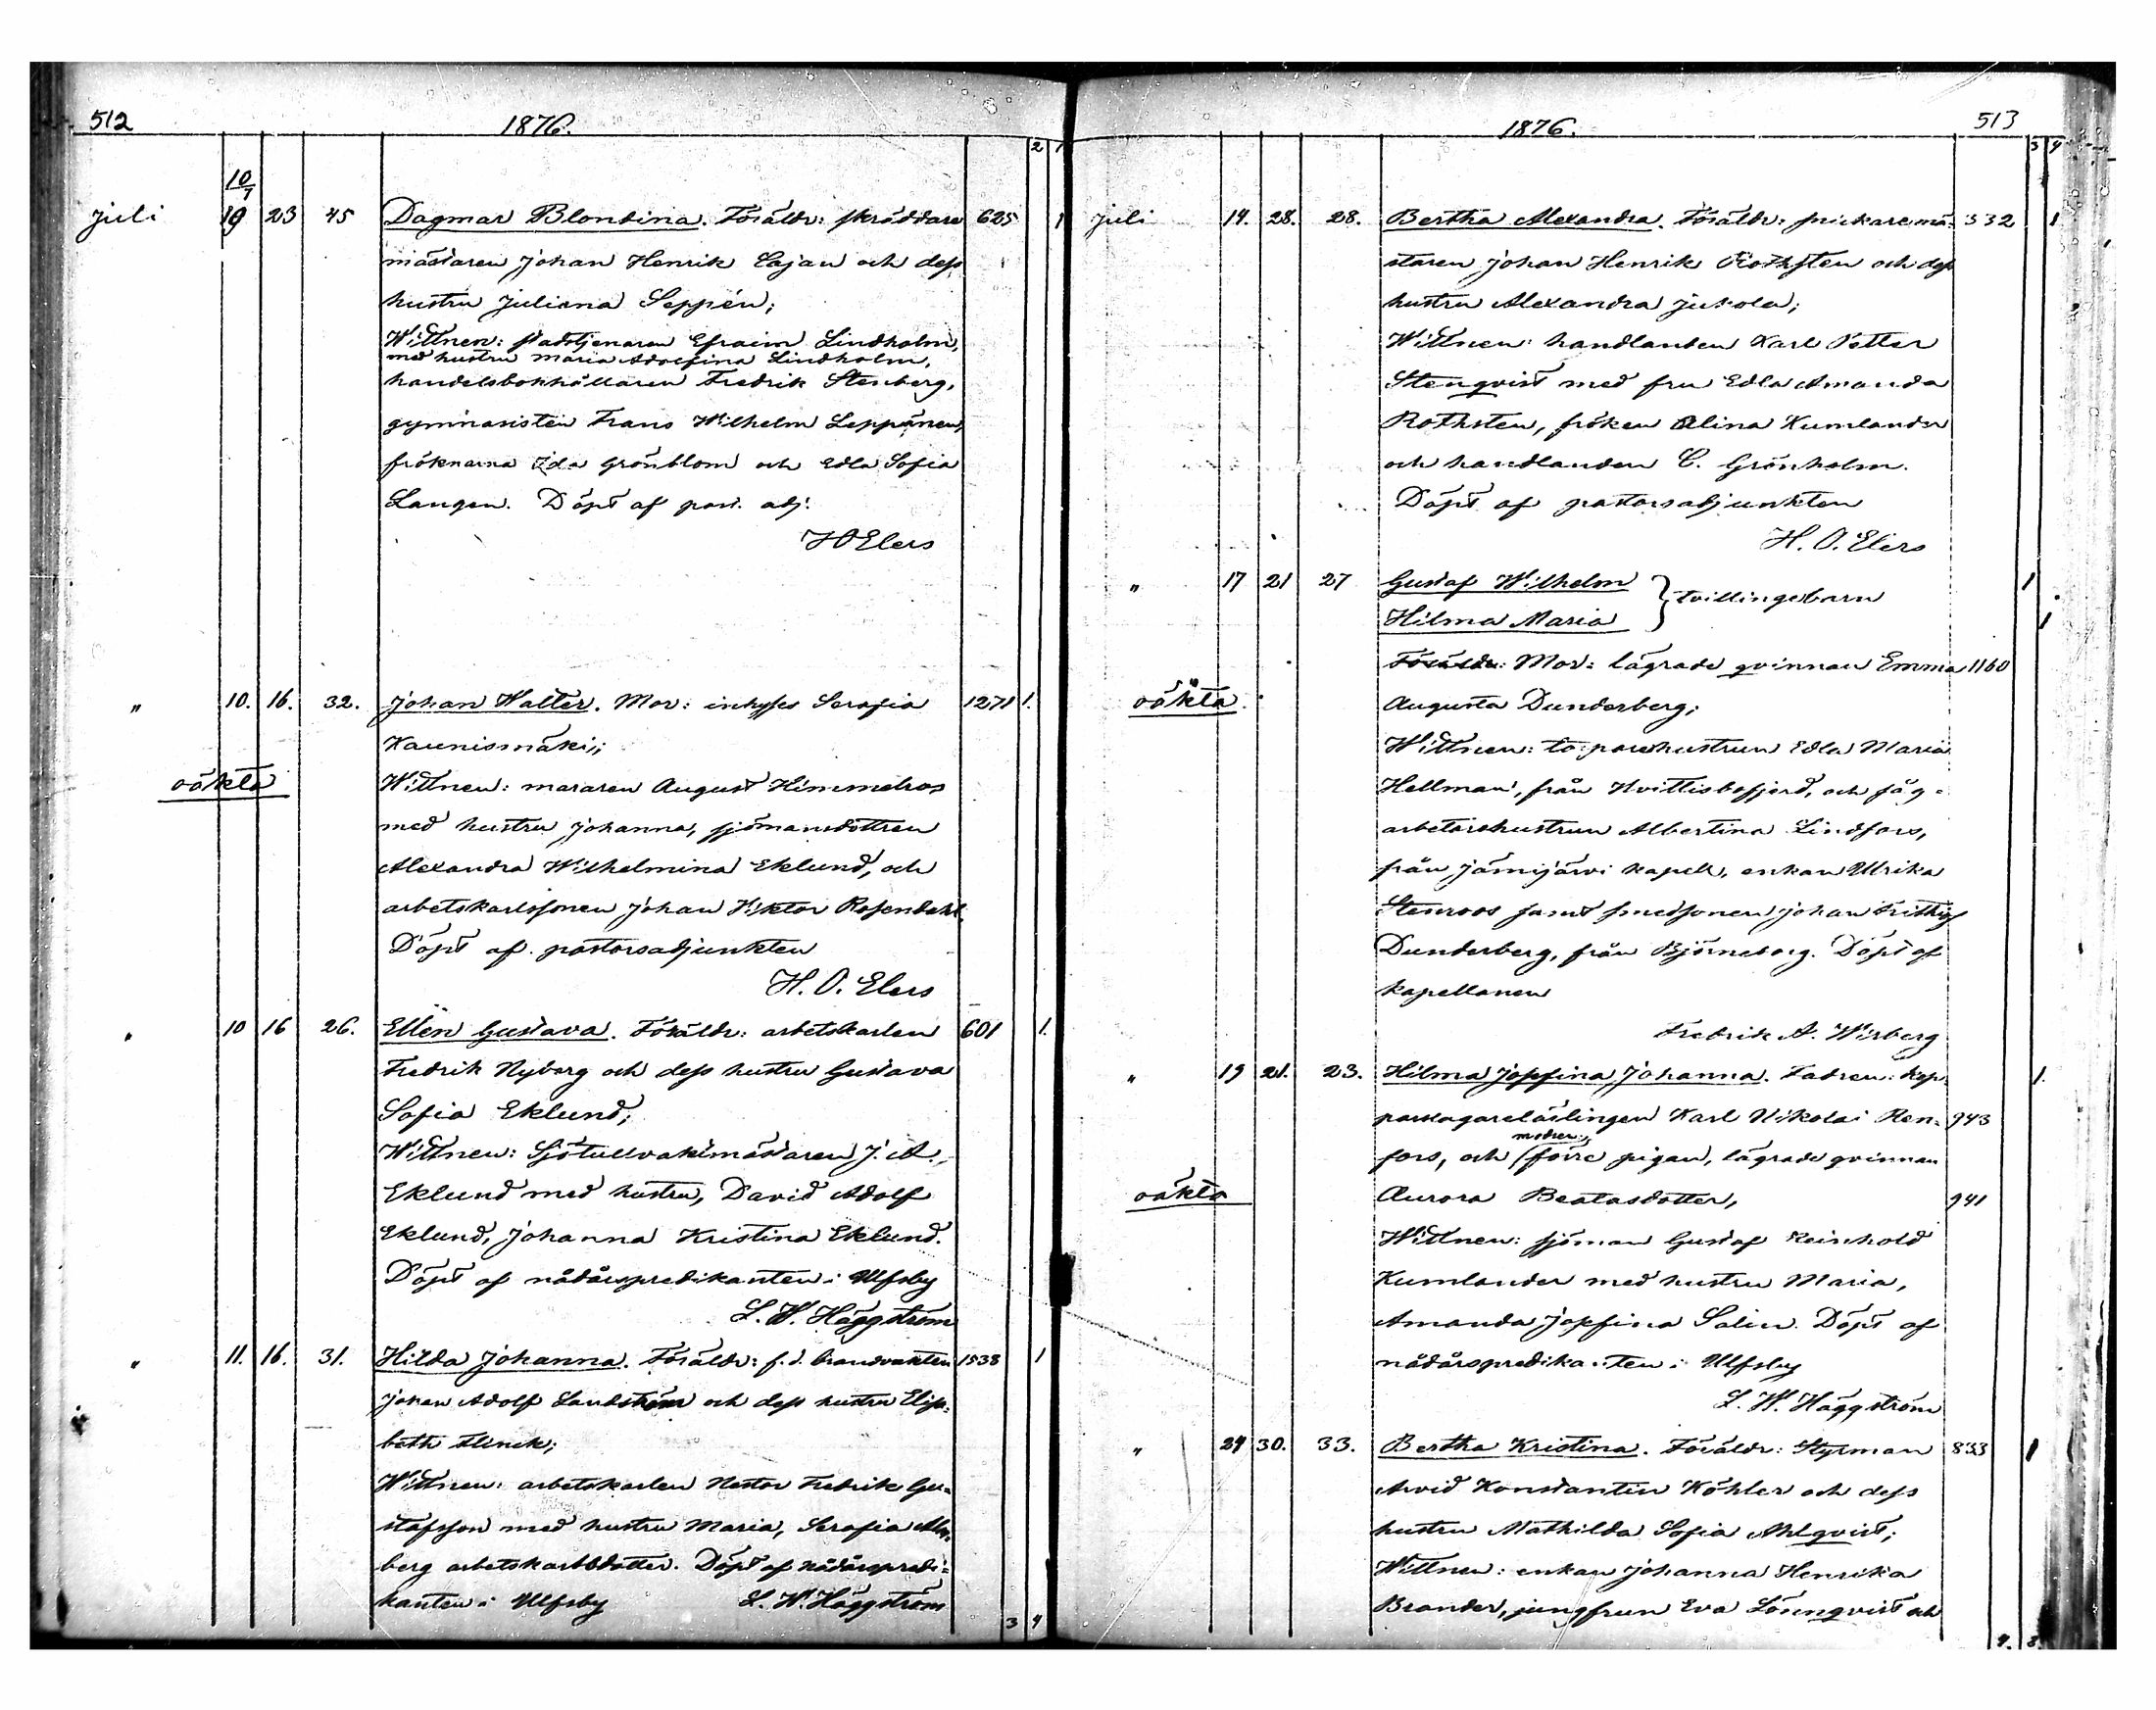 512
1876.
2 1
10/7
Juli 19 23 45 Dagmar Blondina. Föräldr: skräddare 625 1
mästaren Johan Henrik Cajan och dess
hustru Juliana Seppén;
Wittnen: stadstjenaren Efraim Lindholm,
med hustru Maria Adolfina Lindholm,
handelsbokhållaren Fredrik Stenberg,
gymnasisten Frans Wilhelm Leppänen,
fröknarna Ida Grönblom och Edla Sofia
Langen. Döpt af past. adj.
H O Elers
" 10. 16. 32. Johan Walter. Mor: inhyses Serafia 1271 1.
Kaunismäki;
oäkta
Wittnen: muraren August Himmelros
med hustru Johanna, sjömansdottren
Alexandra Wilhelmina Eklund, och
arbetskarlssonen Johan Viktor Rosendahl
Döpt af pastorsadjunkten
H. O. Elers
" 10 16 26. Ellen Gustava. Föräldr: arbetskarlen 601 1.
Fredrik Nyberg och dess hustru Gustava
Sofia Eklund;
Wittnen: Sjötullvaktmästaren J. A.
Eklund med hustru, David Adolf
Eklund, Johanna Kristina Eklund.
Döpt af nådårspredikanten i Ulfsby
L. W. Häggström
" 11. 16. 31. Hilda Johanna. Föräldr: f. d. brandvakten 1538 1
Johan Adolf Landström och dess hustru Elisa-
beth Flinck;
Wittnen: arbetskarlen Nestor Fredrik Gu-
stafsson med hustru Maria, Serafia
berg arbetskarlsdotter. Döpt af nådårspredi-
kanten i Ulfsby L. W. Häggström
3 4
1876.
513
3 4
Juli 14. 28. 28. Bertha Alexandra. Föräldr: snickaremä- 332 1
staren Johan Henrik Rothsten och dess
hustru Alexandra Jukola;
Wittnen: handlanden Karl Petter
Stenqvist med fru Edla Amanda
Rothsten, fröken Alina Kumlander
och handlanden C. Grönholm.
Döpt af pastorsadjunkten
H. O. Elers
" 17 21 27 Gustaf Wilhelm 1
tvillingebarn
Hilma Maria 1
Föräldr: Mor: lägrade qvinnan Emma 1160
oäkta. Augusta Dunderberg;
Wittnen: torparehustrun Edla Maria
Hellman, från Hvittisbofjord, och såg-
arbetarehustrun Albertina Lindfors,
från Jämijärvi kapell, enkan Ulrika
Stenroos samt smedsonen Johan Frithiof
Dunderberg, från Björneborg. Döpt af
kapellanen
Fredrik A. Wirberg
" 19 21. 23. Hilma Josefina Johanna. Fadren: kop- 1.
parslagarelärlingen Karl Nikolai Ren- 943
modren:
fors, och förre pigan, lägrade qvinnan
oäkta Aurora Beatasdotter, 941
Wittnen: sjöman Gustaf Reinhold
Kumlander med hustru Maria,
Amanda Josefina Salin. Döpt af
nådårspredikanten i Ulfsby
L. W. Häggström
" 24 30. 33. Bertha Kristina. Föräldr: Styrman 833 1
Arvid Konstantin Köhler och dess
hustru Mathilda Sofia Ahlqvist;
Wittnen: enkan Johanna Henrika
Brander, jungfrun Eva Lönnqvist och